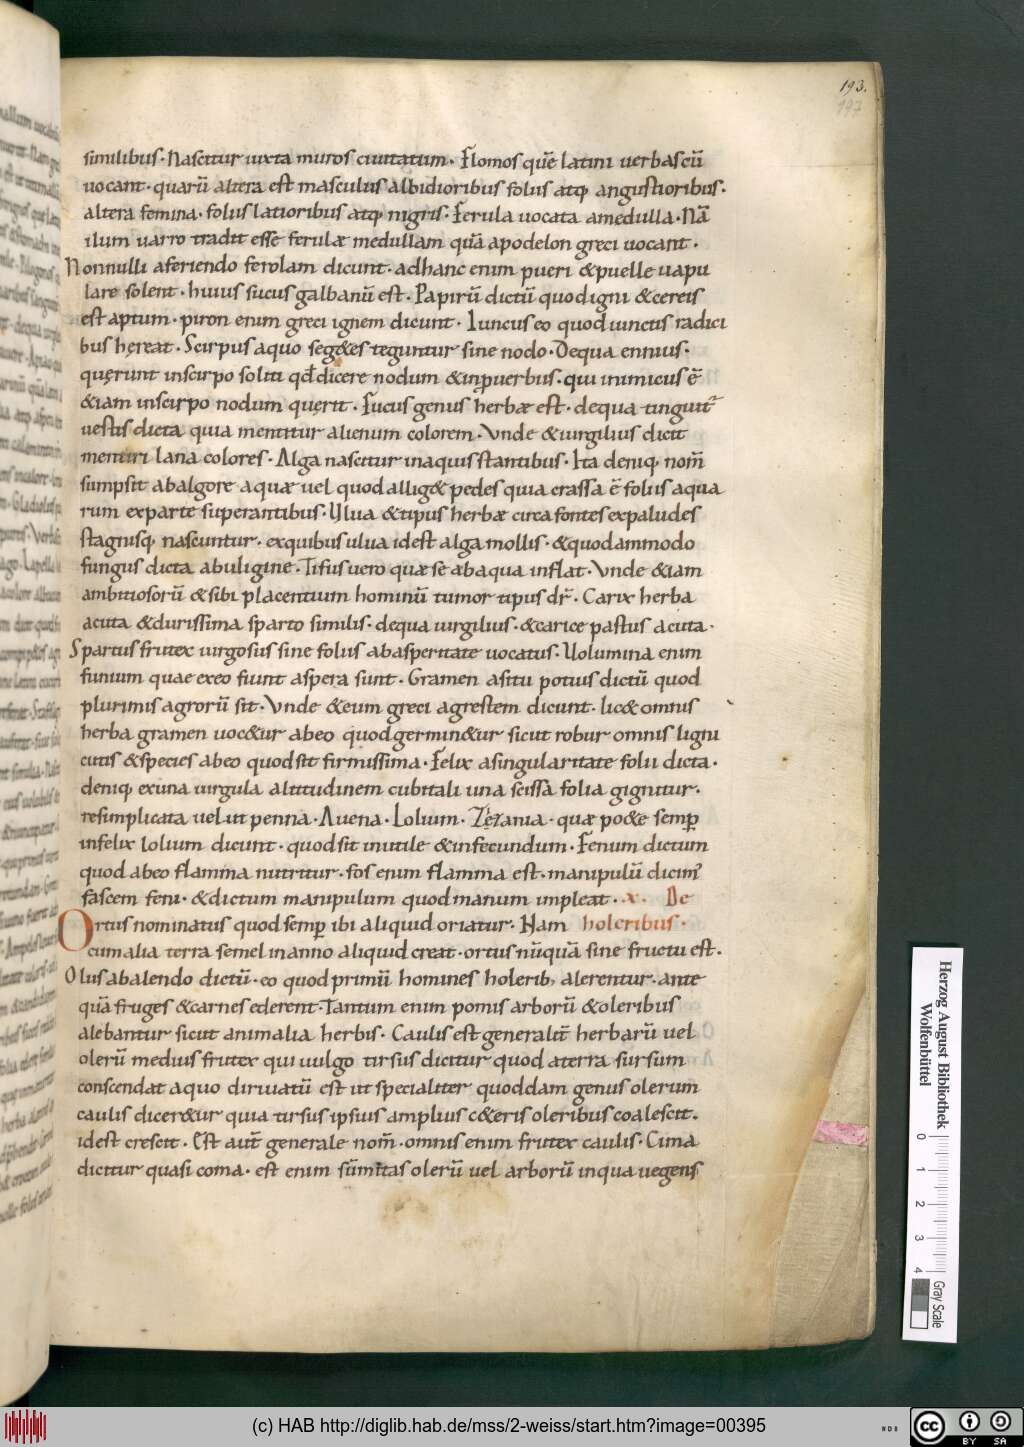 193.
197
similibus · Nascitur iuxta muros ciuitatum · Flomos quē latini uerbascū
uocant · quarū altera est masculus albidioribus folus atq; angustioribus ·
altera femina · folus latioribus atq; nigris · Ferula uocata amedulla · Nā
ilum uarro tradit esse ferulæ medullam quā apodelon greci uocant ·
Nonnulli aferiendo ferolam dicunt · adhanc enim pueri &puelle uapu
lare solent · huius sucus galbanū est · Papirū dictū quodigni &cereis
est aptum · piron enim greci ignem dicunt · Iuncus eo quod iunctis radici
bus hęreat · Scirpus aquo seg&es teguntur sine nodo · Dequa ennius ·
quęrunt inscirpo soliti qđ dicere nodum &inꝓuerbus · qui inimicus ē
&iam inscirpo nodum quęrit · Fucus genus herbæ est · dequa tinguit᷑
uestis dicta quia mentitur alienum colorem · Vnde &uirgilius dicit
mentiri lana colores · Alga nascitur inaquis stantibus · Ita deniq; nom̄
sumpsit abalgore aquæ uel quod allig& pedes quia crassa ē folus aqua
rum exparte superantibus · Vlua &tipus herbæ circa fontes expaludes
stagnisq; nascuntur · exquibus ulua idest alga mollis · &quodammodo
fungus dicta abuligine · Tifus uero quæ se abaqua inflat · Vnde &iam
ambitiosorū &sibi placentium hominū tumor tipus dr̄ · Carix herba
acuta &durissima sparto similis · dequa uirgilius · &carice pastus acuta ·
Spartus frutex uirgosus sine folus abasperitate uocatus · Uolumina enim
funium quae exeo fiunt aspera sunt · Gramen asitu potius dictū quod
plurimis agrorū sit · Vnde &eum greci agrestem dicunt · lic& omnis
herba gramen uoc&ur abeo quodgermin&ur sicut robur omnis ligni
cutis &species abeo quodsit firmissima · Felix asingularitate folii dicta ·
deniq; exuna uirgula altitudinem cubitali una scissa folia gignitur ·
resimplicata uelut penna · Auena · Lolium · Zęzania · quæ po&e semꝑ
infelix lolium dicunt · quodsit inutile &infecundum · Fenum dictum
quod abeo flamma nutritur · fos enim flamma est · manipulū dicim᷒
fascem feni · &dictum manipulum quod manum impleat · x · De
Ortus nominatus quod semꝑ ibi aliquid oriatur · Nam holeribus ·
cumalia terra semel inanno aliquid creat · ortus nūquā sine fructu est ·
Olus abalendo dictū · eo quod primū homines holerib; alerentur · ante
quā fruges &carnes ederent · Tantum enim pomis arborū &oleribus
alebantur sicut animalia herbis · Caulis est generalit̄ herbarū uel
olerū medius frutex qui uulgo tirsus dicitur quod aterra sursum
conscendat aquo diriuatū est ut specialiter quoddam genus olerum
caulis dicer&ur quia tirsus ipsius amplius c&eris oleribus coalescit ·
idest crescit · Est aut̄ generale nom̄ · omnis enim frutex caulis · Cima
dicitur quasi coma · est enim sūmitas olerū uel arborū inqua uegens
Herzog August Bibliothek
Wolfenbüttel
0 1 2 3 4
Gray Scale
(c) HAB http://diglib.hab.de/mss/2-weiss/start.htm?image=00395
cc BY SA